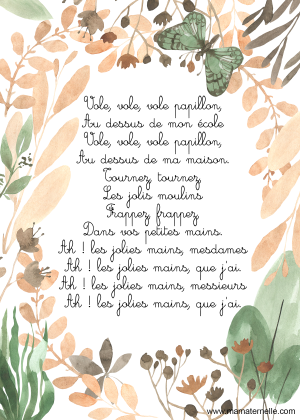 Vole, vole, vole papillon,
Au dessus de mon école
Vole, vole, vole papillon,
Au dessus de ma maison.
Tournez tournez
Les jolis moulins
Frappez frappez
Dans vos petites mains.
Ah ! les jolies mains, mesdames
Ah ! les jolies mains, que j'ai.
Ah ! les jolies mains, messieurs
Ah ! les jolies mains, que j'ai.
www.mamaternelle.com